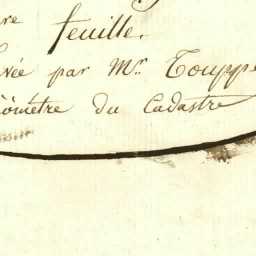 re
feuille.
vée par Mr. Toupp
ométre du Cadastre